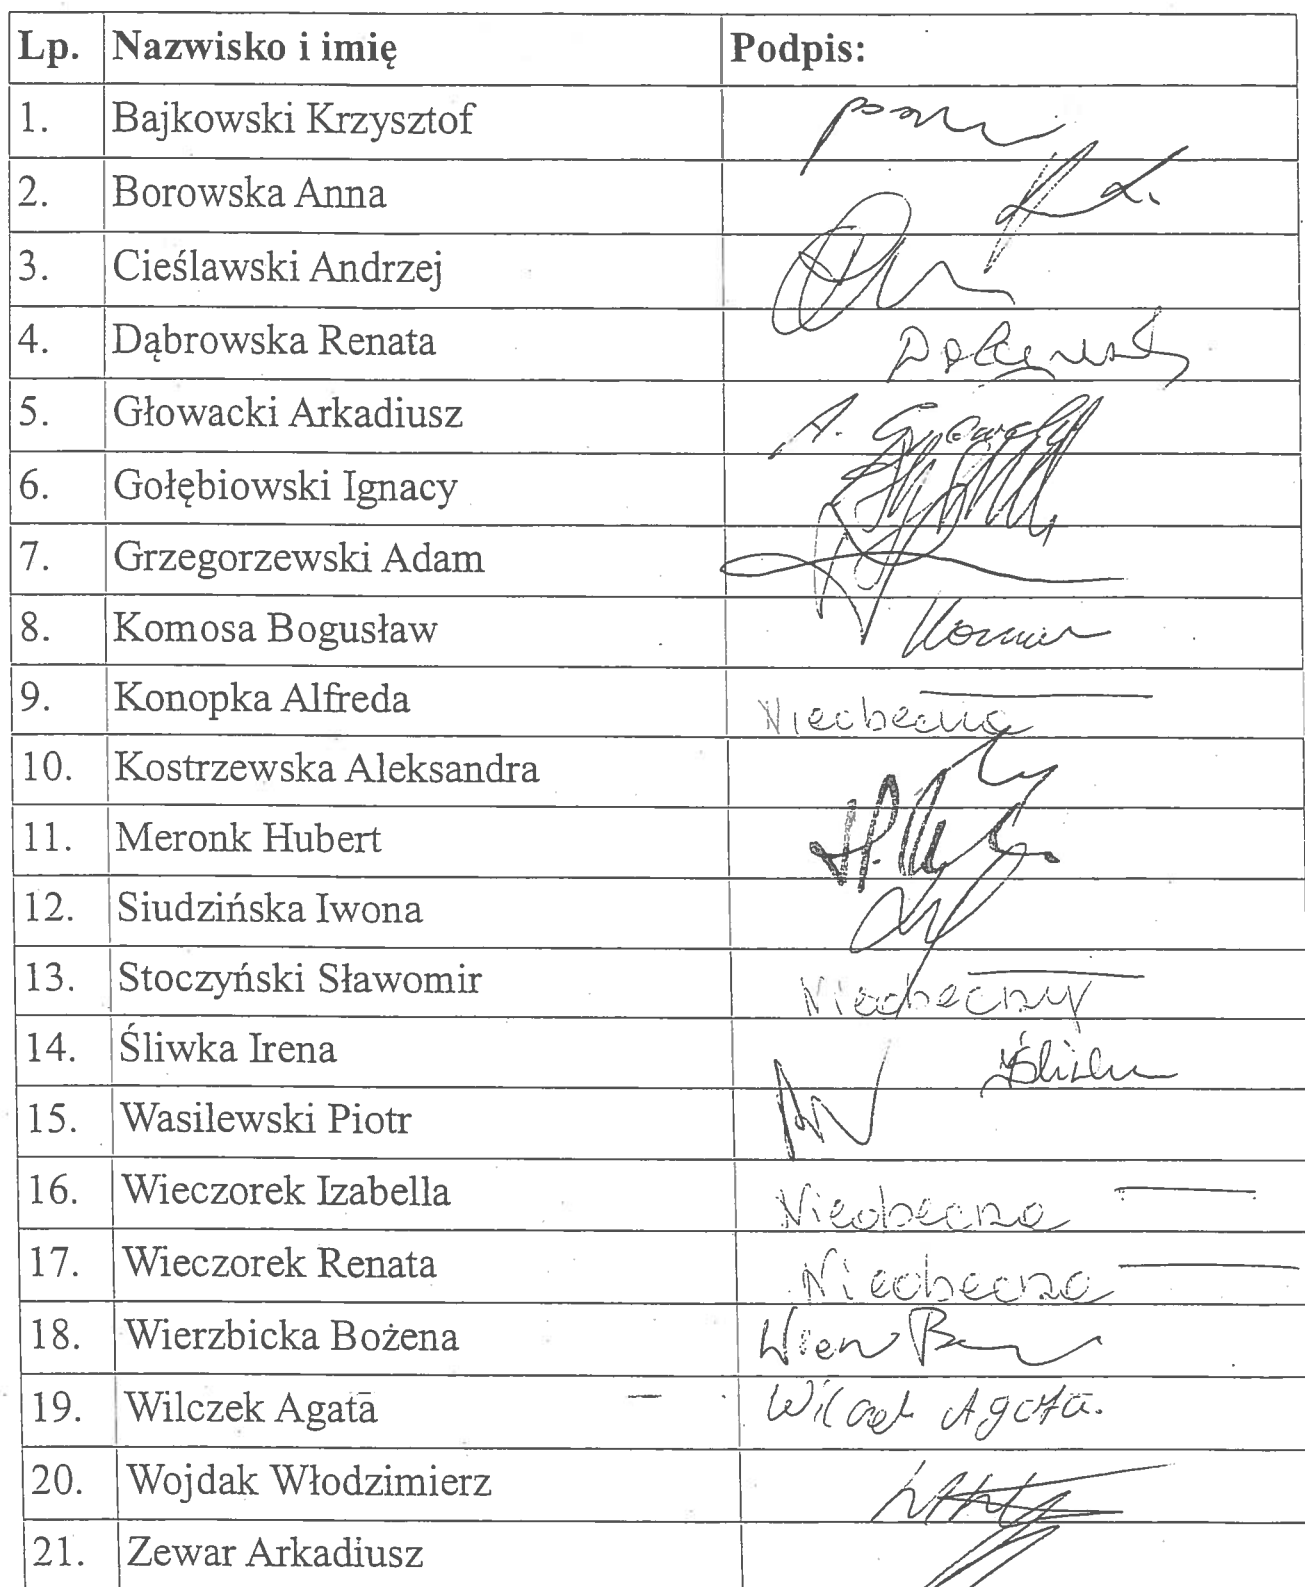 Lp. Nazwisko i imię Podpis:
1. Bajkowski Krzysztof
2. Borowska Anna
3. Cieślawski Andrzej
4. Dąbrowska Renata
5. Głowacki Arkadiusz A.
6. Gołębiowski Ignacy
7. Grzegorzewski Adam
8. Komosa Bogusław
9. Konopka Alfreda Nieobecna
10. Kostrzewska Aleksandra
11. Meronk Hubert
12. Siudzińska Iwona
13. Stoczyński Sławomir Nieobecny
14. Śliwka Irena
15. Wasilewski Piotr
16. Wieczorek Izabella Nieobecna
17. Wieczorek Renata Nieobecna
18. Wierzbicka Bożena
19. Wilczek Agata Wilczek Agata.
20. Wojdak Włodzimierz
21. Zewar Arkadiusz